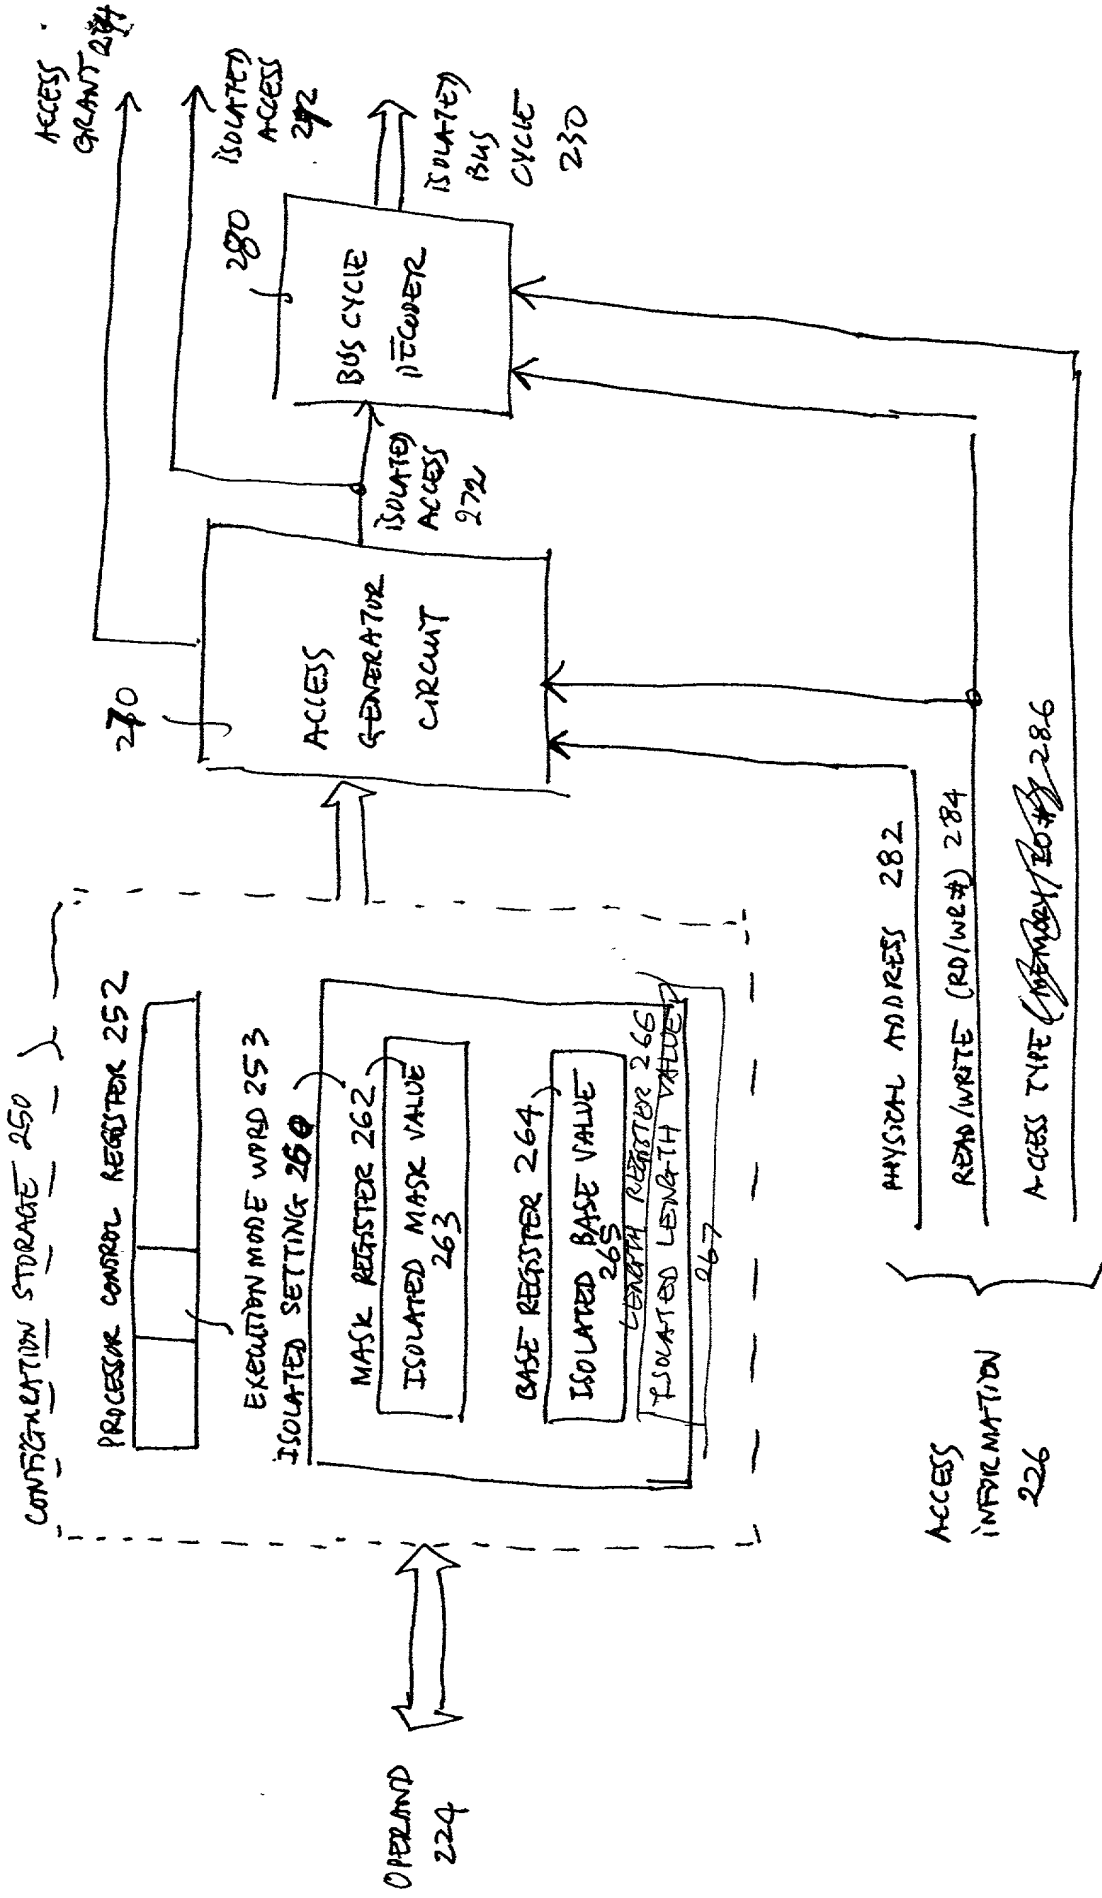 CONFIGURATION STORAGE 250
PROCESSOR CONTROL REGISTER 252
EXECUTION MODE WORD 253
ISOLATED SETTING 260
MASK REGISTER 262
ISOLATED MASK VALUE
263
BASE REGISTER 264
ISOLATED BASE VALUE
265
LENGTH REGISTER 266
ISOLATED LENGTH VALUE
267
OPERAND
224
270
ACCESS
GENERATOR
CIRCUIT
ISOLATED
ACCESS
272
280
BUS CYCLE
DECODER
ACCESS
GRANT
ISOLATED
ACCESS
272
ISOLATED
BUS
CYCLE
230
PHYSICAL ADDRESS 282
READ/WRITE (RD/WR#) 284
ACCESS TYPE (MEMORY/IO#) 286
ACCESS
INFORMATION
226